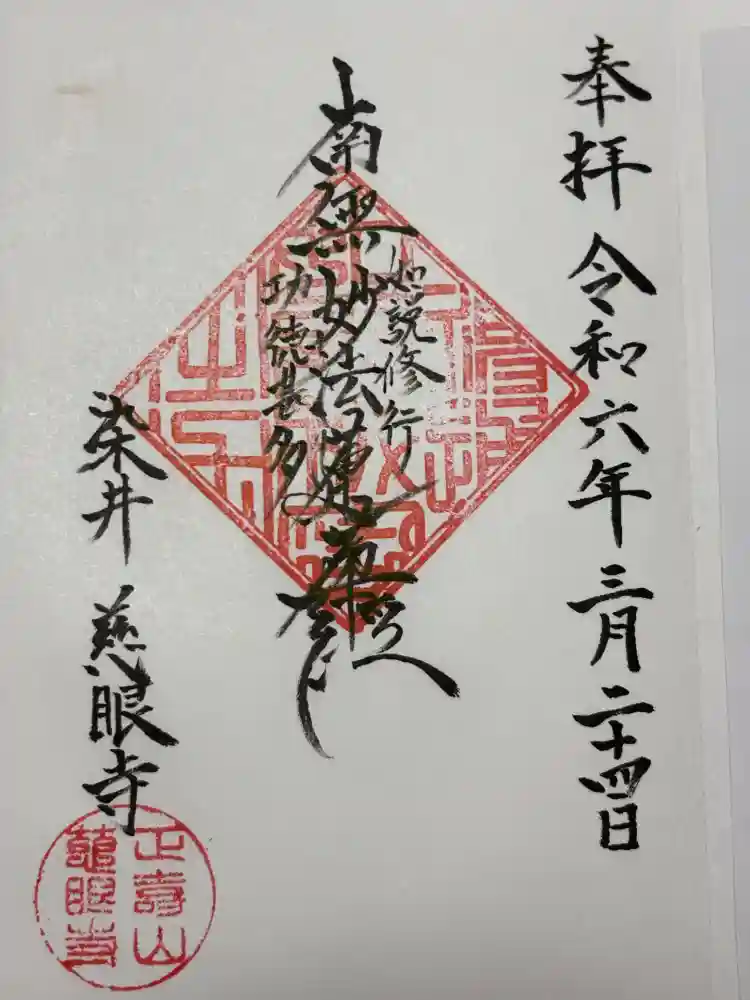 奉拝 令和六年三月二十四日
如説修行
南無妙法蓮華経
功徳甚多
染井 慈眼寺
正壽山
慈眼寺